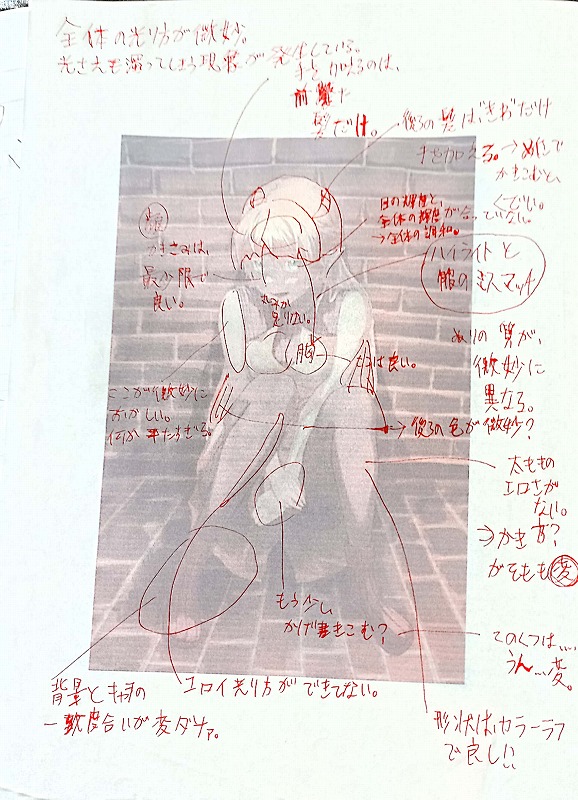 全体の光り方が微妙。
光さえも濁ってしまう現象が発生している。
手を加えるのは、
前髪だけ。
後ろの髪はきおだけ
手を加える。→めんで
かきこむと、
くどい。
目の輝度と、
全体の輝度が合っていない。
→全体の調和。
ハイライトと
服のミスマッチ
顔
かきこみは、
最少限で
良い。
足りない。
胸
は良い。
ぬりの質が、
微妙に
異なる。
ここが微妙に
おかしい。
何か平たすぎる。
→後ろの色が微妙?
太ももの
エロさが
ない。
⇒かき方?
がそもそも変
もう少し
かげ書きこむ?
このくつは....
うん...変。
背景とキャラの
一致度合いが変ダナァ。
エロイ光り方ができてない。
形状はカラーラフ
で良し!!